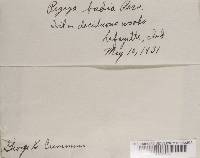 Peziza badia Pers.
Soil in deciduous woods
Lafayette, Ind
May 12, 1931
George B. Cummins